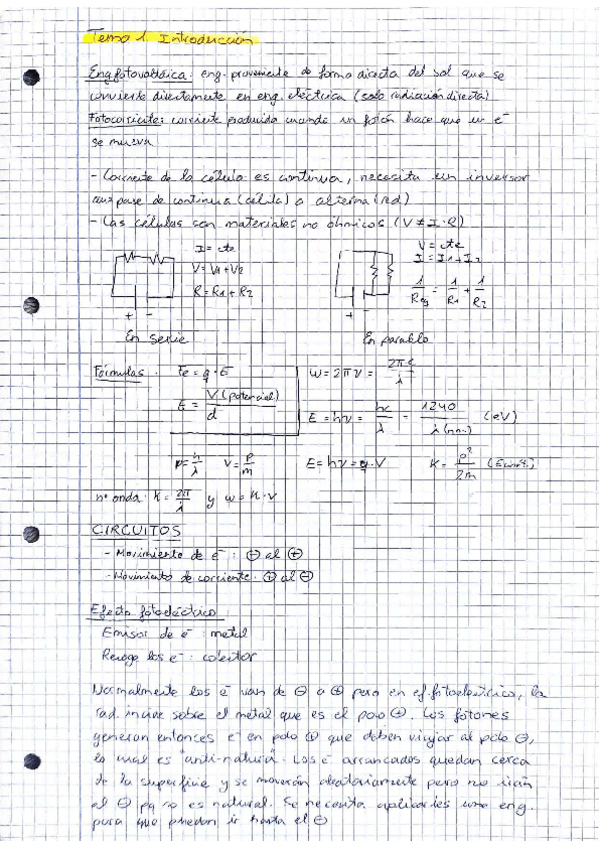 Tema 1. Introducción
Eng fotovoltáica: eng. proveniente de forma directa del sol que se
convierte directamente en eng. eléctrica (solo radiación directa)
Fotocorriente: corriente producida cuando un fotón hace que un e⁻
se mueva
- Corriente de la célula es continua, necesita un inversor
que pase de continua (célula) a alterna (red)
- Las células son materiales no óhmicos (V ≠ I·R)
I = cte
V = V1 + V2
R = R1 + R2
+ -
En serie
V = cte
I = I1 + I2
1/Req = 1/R1 + 1/R2
+ -
En paralelo
Fórmulas: Fe = q·E
E = V(potencial)/d
w = 2πν = 2πc/λ
E = hν = hc/λ = 1240/λ(nm) (eV)
p = h/λ V = p/m E = hν = q·V K = p²/2m (Ecinét.)
nº onda: K = 2π/λ y w = K·v
CIRCUITOS
- Movimiento de e⁻: ⊖ al ⊕
- Movimiento de corriente: ⊕ al ⊖
Efecto fotoeléctrico
Emisor de e⁻: metal
Recoge los e⁻: colector
Normalmente los e⁻ van de ⊖ a ⊕ pero en ef. fotoeléctrico, la
rad. incide sobre el metal que es el polo ⊕. Los fotones
generan entonces e⁻ en polo ⊕ que deben viajar al polo ⊖,
lo cual es "anti-natura". Los e⁻ arrancados quedan cerca
de la superficie y se moverán aleatoriamente pero no irán
al ⊖ pq no es natural. Se necesita aplicarles una eng.
para que puedan ir hasta el ⊖